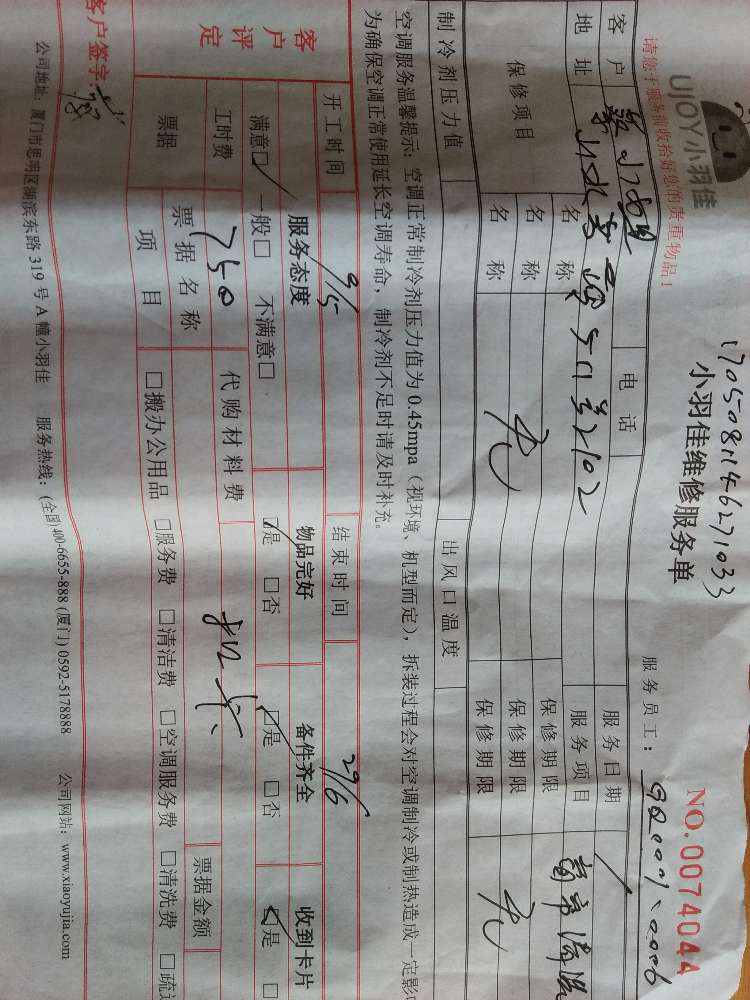 UJOY小羽佳
请您于服务前收拾好您的贵重物品!
1705081146271033
小羽佳维修服务单
NO.0074044
服务员工:
客户
电话
服务日期
地址
服务项目
保修项目
名称
保修期限
名称
保修期限
名称
制冷剂压力值
出风口温度
空调服务温馨提示:空调正常制冷剂压力值为0.45mpa(视环境、机型而定),拆装过程会对空调制冷或制热造成一定影响
为确保空调正常使用延长空调寿命,制冷剂不足时请及时补充。
客户评定
开工时间
结束时间
服务态度 物品完好 备件齐全 收到卡片
满意□ 一般□ 不满意□ □是 □否 □是 □否 □是 □
工时费 750 代购材料费
票据 票据名称 票据金额
项目 □搬办公用品 □服务费 □清洁费 □空调服务费 □清洗费 □疏
客户签字:
公司地址:厦门市思明区湖滨东路319号A幢小羽佳 服务热线:(全国)400-6655-888(厦门)0592-5178888 公司网站:www.xiaoyujia.com